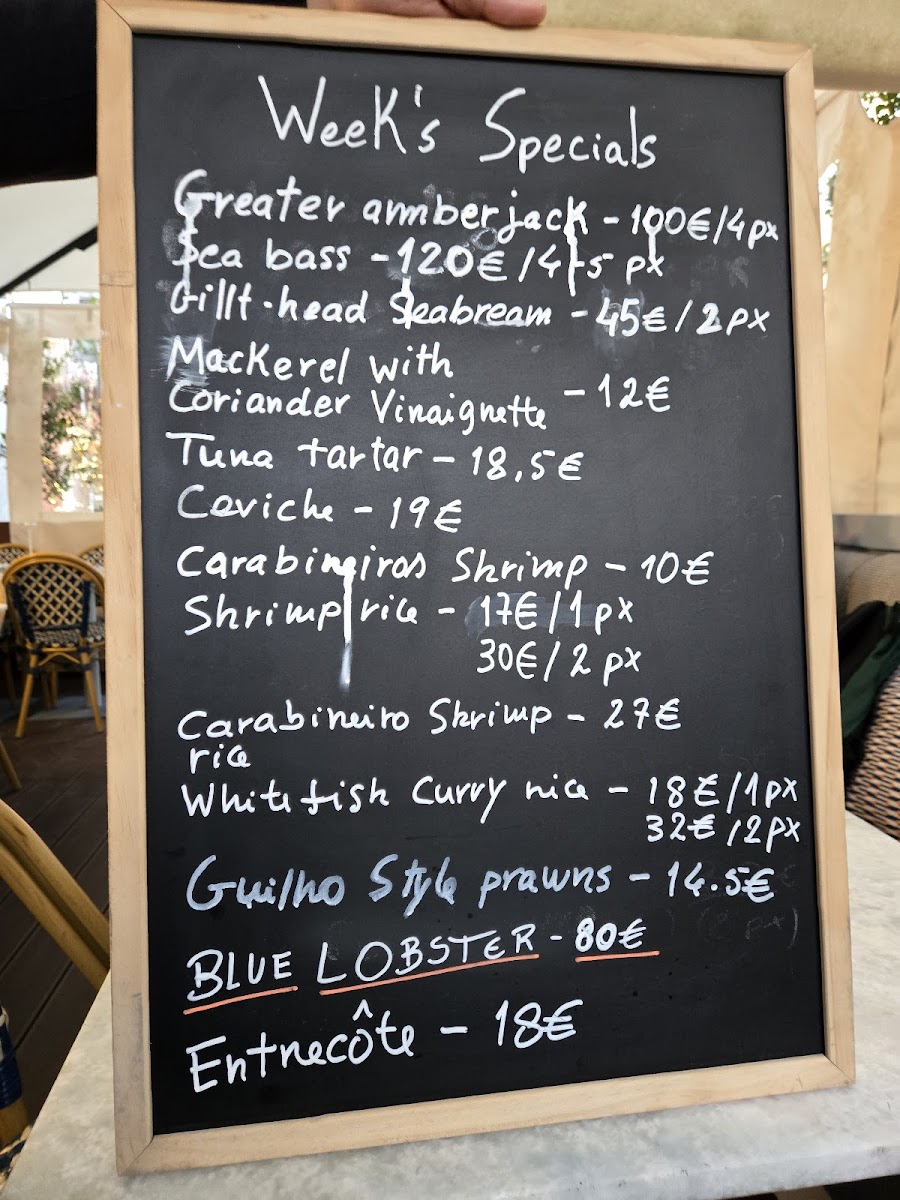 Week's Specials
Greater amberjack - 100€/4px
Sea bass - 120€/4-5 px
Gillt-head Seabream - 45€/2px
Mackerel with
Coriander Vinaignette - 12€
Tuna tartar - 18,5€
Ceviche - 19€
Carabineiros Shrimp - 10€
Shrimp rice - 17€/1px
30€/2 px
Carabineiro Shrimp - 27€
rice
White fish Curry rice - 18€/1px
32€/2px
Guilho Style prawns - 14.5€
BLUE LOBSTER - 80€
Entrecôte - 18€